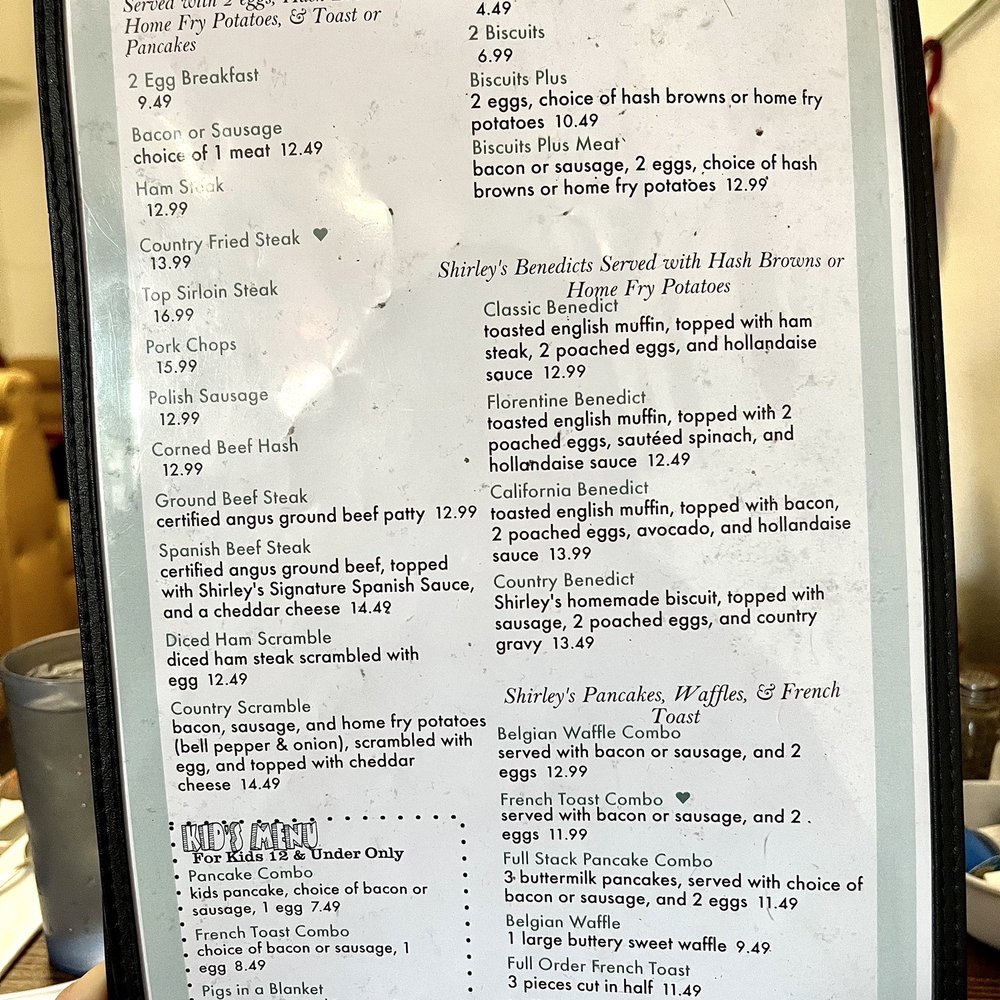 Served with 2 eggs, Hash
Home Fry Potatoes, & Toast or
Pancakes
2 Egg Breakfast
9.49
Bacon or Sausage
choice of 1 meat 12.49
Ham Steak
12.99
Country Fried Steak ♥
13.99
Top Sirloin Steak
16.99
Pork Chops
15.99
Polish Sausage
12.99
Corned Beef Hash
12.99
Ground Beef Steak
certified angus ground beef patty 12.99
Spanish Beef Steak
certified angus ground beef, topped
with Shirley's Signature Spanish Sauce,
and a cheddar cheese 14.49
Diced Ham Scramble
diced ham steak scrambled with
egg 12.49
Country Scramble
bacon, sausage, and home fry potatoes
(bell pepper & onion), scrambled with
egg, and topped with cheddar
cheese 14.49
KID'S MENU
For Kids 12 & Under Only
Pancake Combo
kids pancake, choice of bacon or
sausage, 1 egg 7.49
French Toast Combo
choice of bacon or sausage, 1
egg 8.49
Pigs in a Blanket
4.49
2 Biscuits
6.99
Biscuits Plus
2 eggs, choice of hash browns or home fry
potatoes 10.49
Biscuits Plus Meat
bacon or sausage, 2 eggs, choice of hash
browns or home fry potatoes 12.99
Shirley's Benedicts Served with Hash Browns or
Home Fry Potatoes
Classic Benedict
toasted english muffin, topped with ham
steak, 2 poached eggs, and hollandaise
sauce 12.99
Florentine Benedict
toasted english muffin, topped with 2
poached eggs, sautéed spinach, and
hollandaise sauce 12.49
California Benedict
toasted english muffin, topped with bacon,
2 poached eggs, avocado, and hollandaise
sauce 13.99
Country Benedict
Shirley's homemade biscuit, topped with
sausage, 2 poached eggs, and country
gravy 13.49
Shirley's Pancakes, Waffles, & French
Toast
Belgian Waffle Combo
served with bacon or sausage, and 2
eggs 12.99
French Toast Combo ♥
served with bacon or sausage, and 2
eggs 11.99
Full Stack Pancake Combo
3 buttermilk pancakes, served with choice of
bacon or sausage, and 2 eggs 11.49
Belgian Waffle
1 large buttery sweet waffle 9.49
Full Order French Toast
3 pieces cut in half 11.49